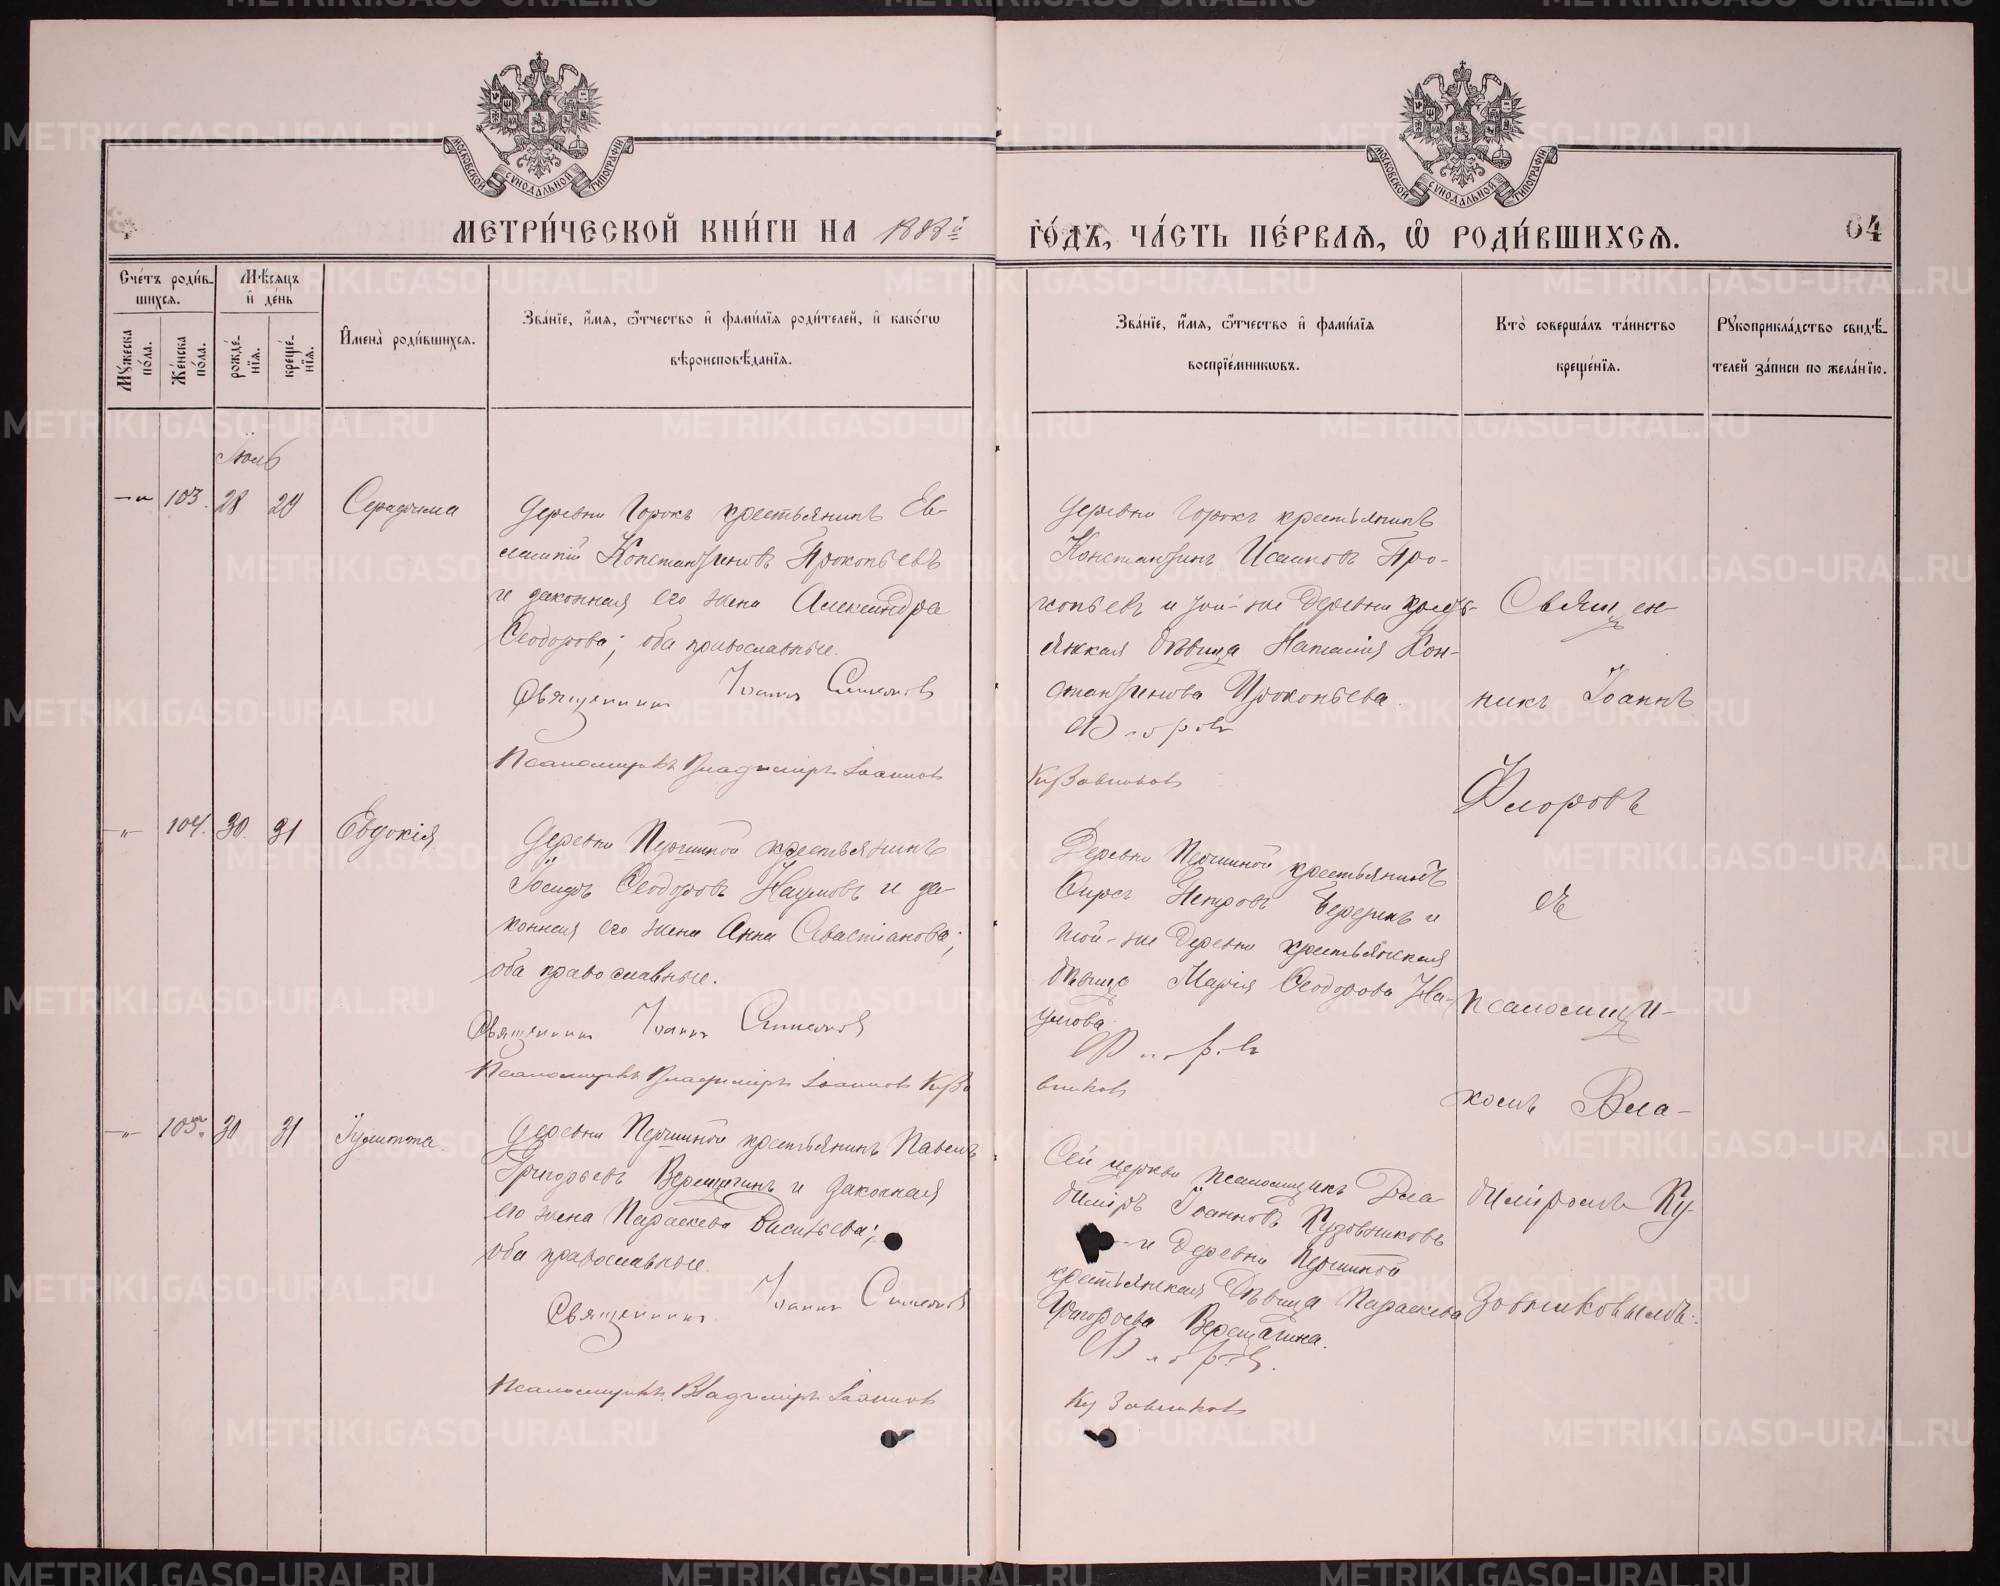 МОСКОВСКОЙ СУНОДАЛЬНОЙ ТИПОГРАФІИ
МОСКОВСКОЙ СУНОДАЛЬНОЙ ТИПОГРАФІИ
МЕТРИ́ЧЕСКОЙ КНИ́ГИ НА 1888й
ГО́ДЪ, ЧА́СТЬ ПЕ́РВАѦ, Ѡ҆ РОДИ́ВШИХСѦ.
64
Сче́тъ роди́в-
шихсѧ.
Мѣ́сѧцъ
и҆ де́нь
Мꙋ́жеска
по́ла.
Же́нска
по́ла.
рожде́-
нїѧ.
креще́-
нїѧ.
И҆мена̀ роди́вшихсѧ.
Зва́нїе, и҆́мѧ, ѻ҆́тчество и҆ фами́лїѧ роди́телей, и҆ како́гѡ
вѣроисповѣ́данїѧ.
Зва́нїе, и҆́мѧ, ѻ҆́тчество и҆ фами́лїѧ
воспрїе́мникѡвъ.
Кто̀ соверша́лъ та́инство
креще́нїѧ.
Рꙋкоприкла́дство свидѣ́-
телей за́писи по жела́нїю.
Іюль
103. 28 29 Серафима
Деревни Горокъ крестьянинъ Ев-
лампій Константиновъ Прокопьевъ
и законная его жена Александра
Ѳеодорова; оба православные.
Священникъ Іоаннъ Симеонов
Псаломщикъ Владиміръ Іоаннов
Деревни Горокъ крестьянинъ
Константинъ Исааковъ Про-
копьевъ и той-же деревни кресть-
янская дѣвица Наталія Кон-
стантинова Прокопьева.
Флоров
Кузовников
Священ-
никъ Іоаннъ
Флоровъ
съ
псаломщи-
комъ Вла-
диміромъ Ку-
зовниковымъ.
104. 30. 31 Евдокія
Деревни Першиной крестьянинъ
Іосифъ Ѳеодоровъ Наумовъ и за-
конная его жена Анна Севастіанова;
оба православные.
Священник Іоаннъ Симеонов
Псаломщикъ Владиміръ Іоаннов Кузо
Деревни Першиной крестьянинъ
Петровъ и
той-же деревни крестьянская
дѣвица Марія Ѳеодорова На-
умова
Флоров
вников
105. 30 31 Іулитта.
Деревни Першиной крестьянинъ Павелъ
Григорьевъ Верещагинъ и законная
его жена Параскева Васильева;
оба православные.
Священникъ Іоаннъ Симеонов
Псаломщикъ Владиміръ Іоаннов
Сей церкви псаломщикъ Вла-
диміръ Іоанновъ Кузовниковъ
и деревни Першиной
крестьянская дѣвица Параскева
Григорьева Верещагина.
Флоров.
Кузовников
METRIKI.GASO-URAL.RU